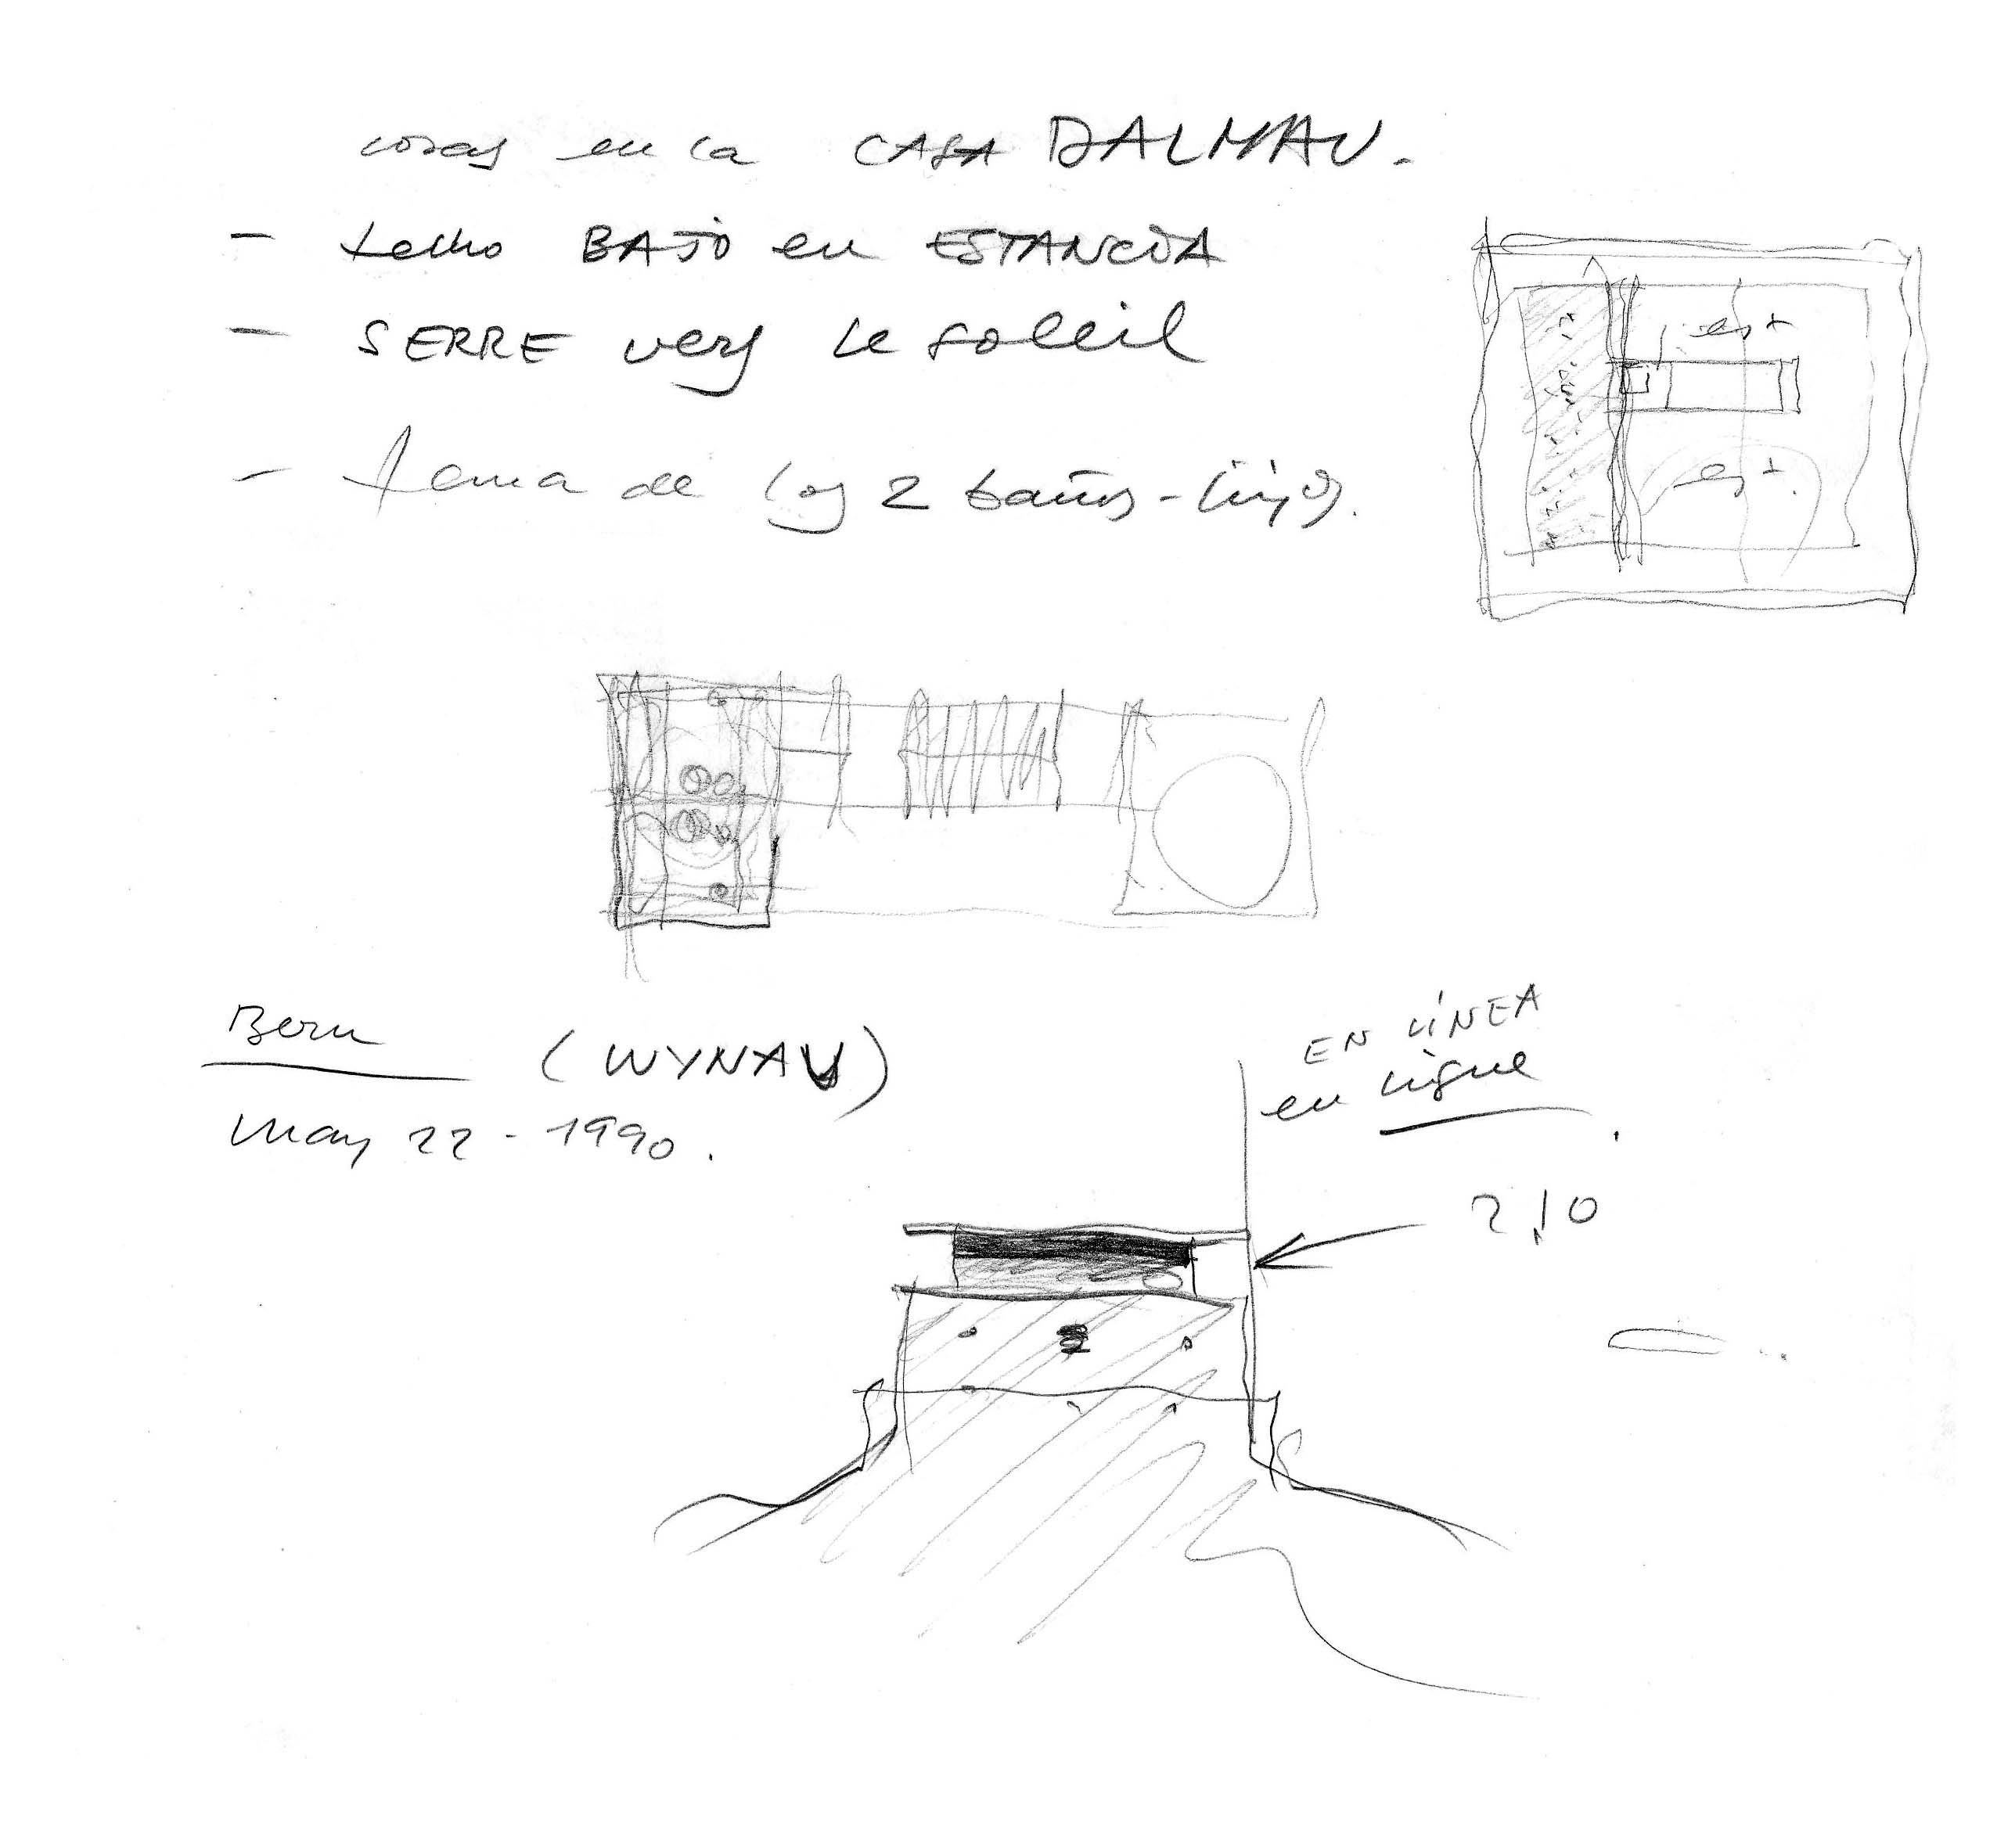 cosas en la CASA DALMAU.
- techo BAJO en ESTANCIA
- SERRE vers le soleil
- tema de los 2 baños - hijos.
est
est.
Bern (WYNAU)
May 22 - 1990.
EN LÍNEA
en ligne
2,10